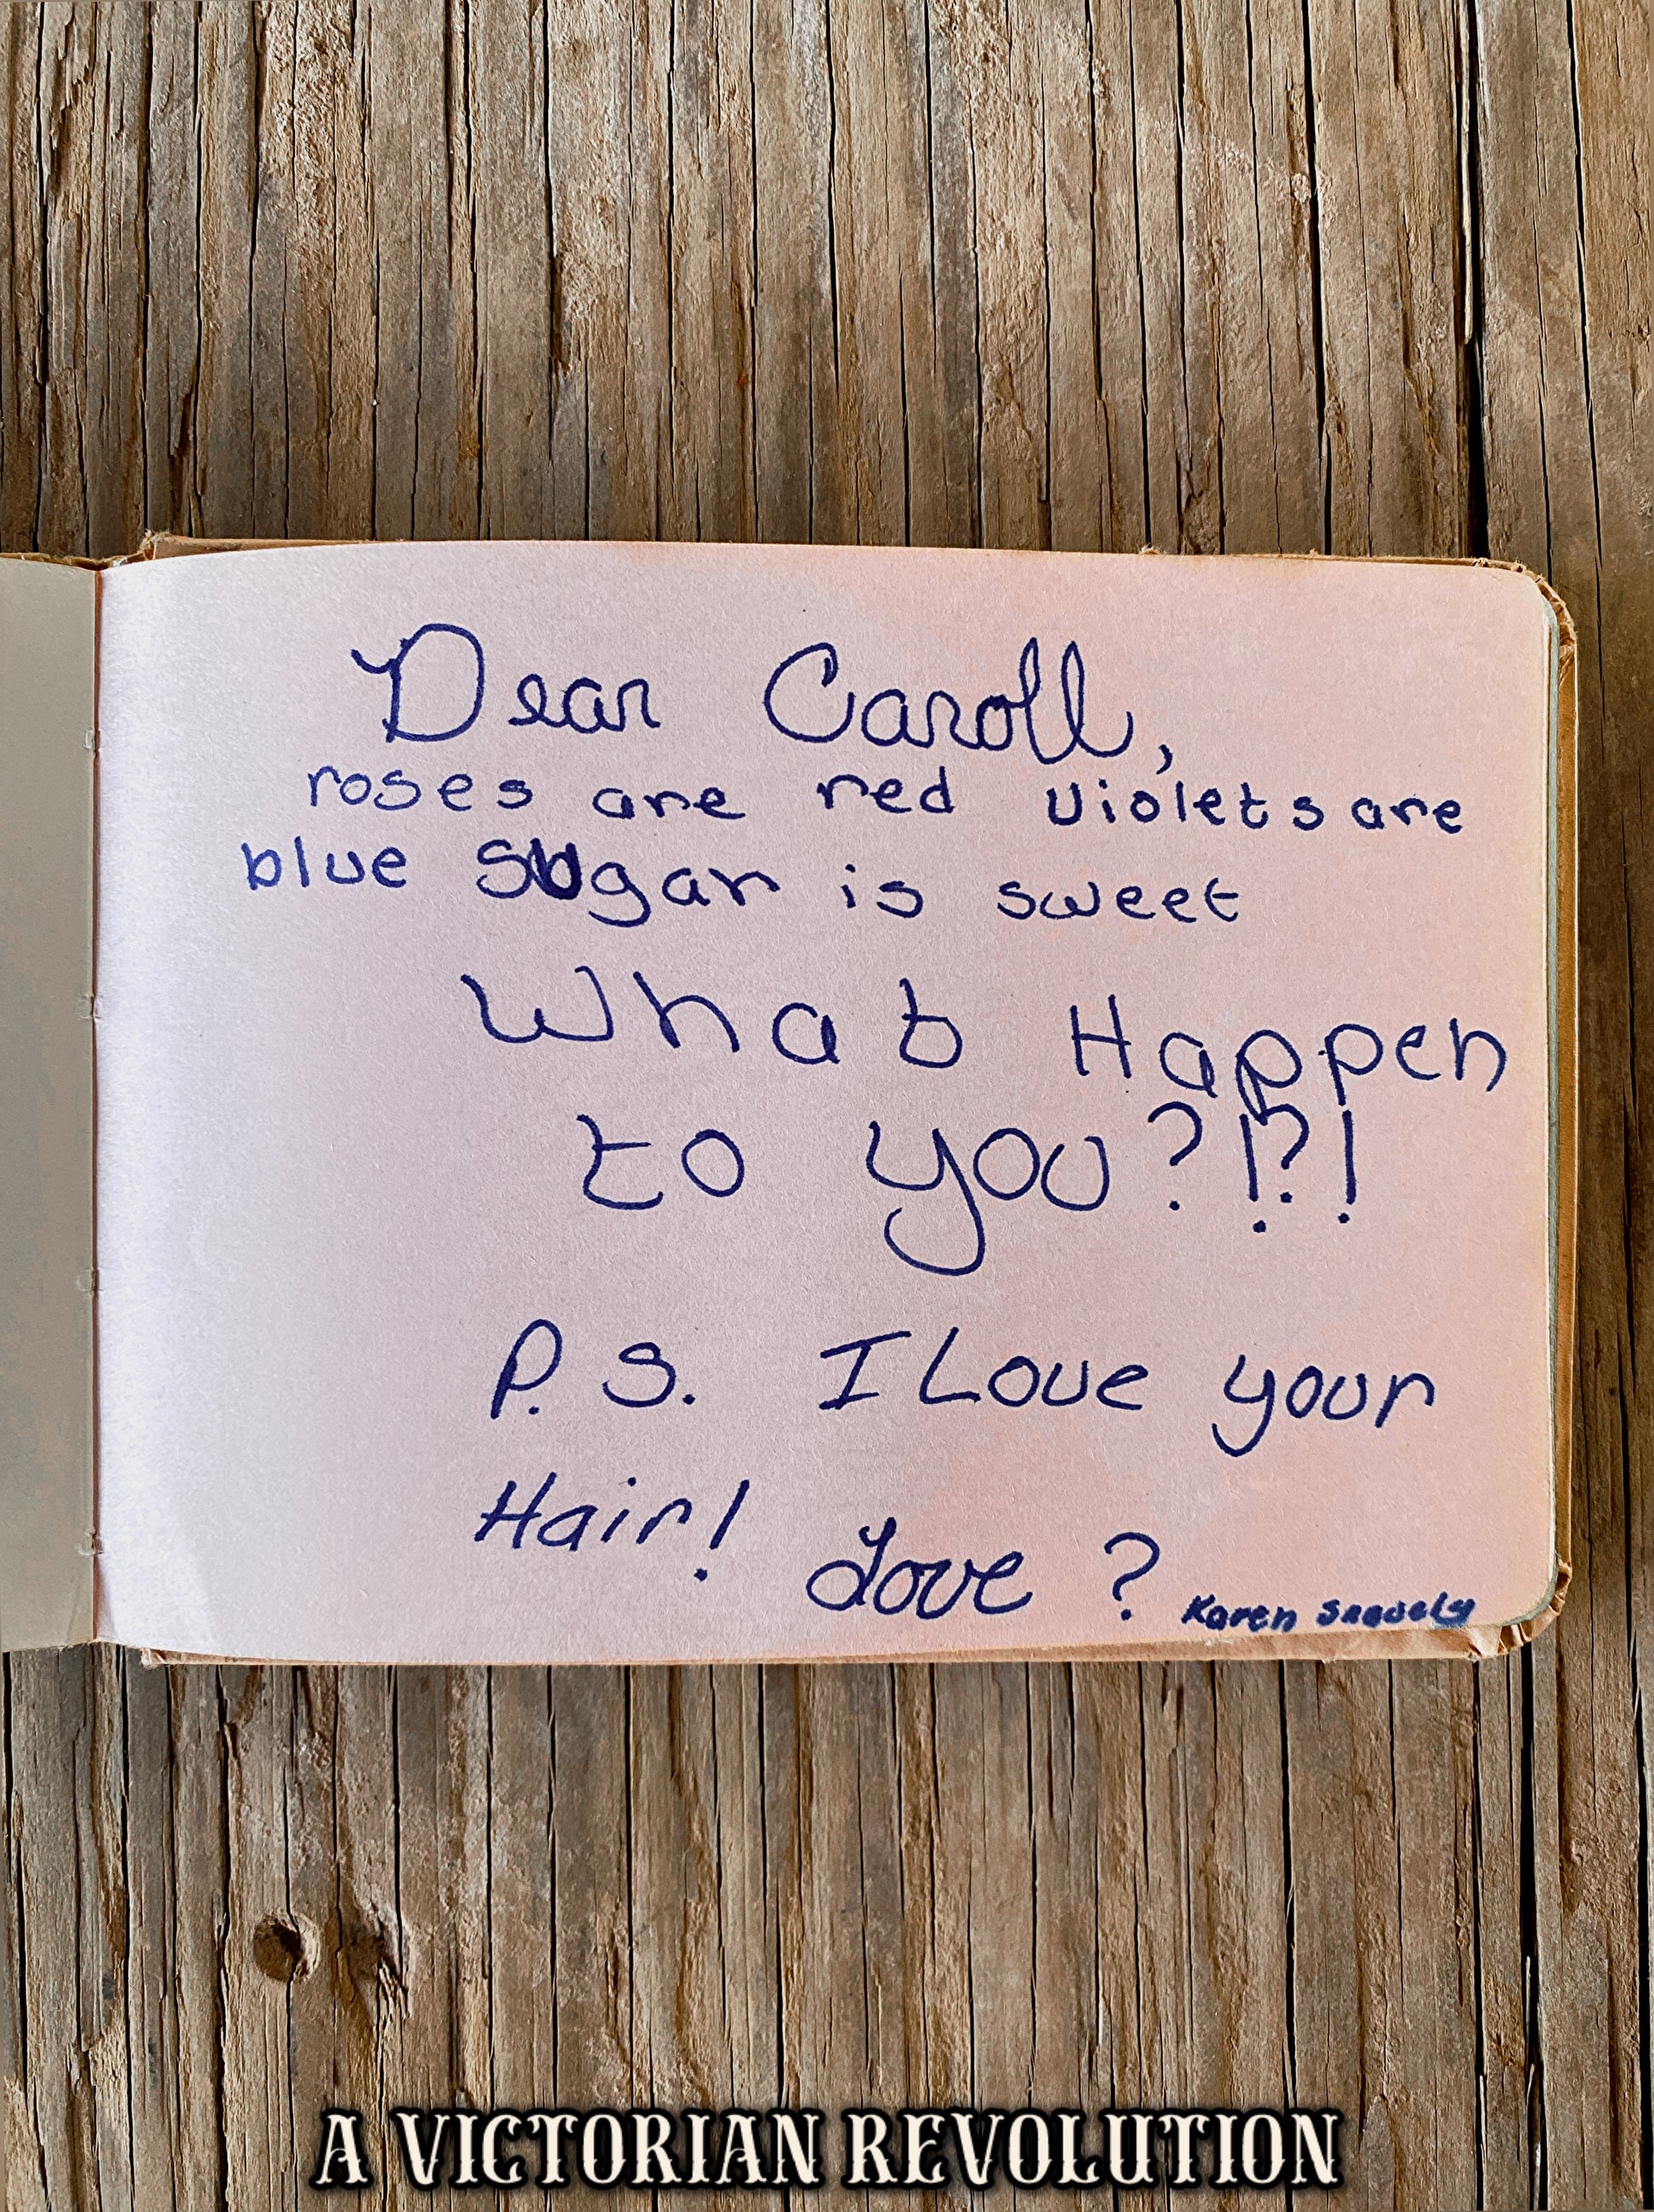 Dear Caroll,
roses are red violets are
blue sugar is sweet
What Happen
to you?!?!
P.S. I Love your
Hair!
Love ? Karen Snavely
A VICTORIAN REVOLUTION